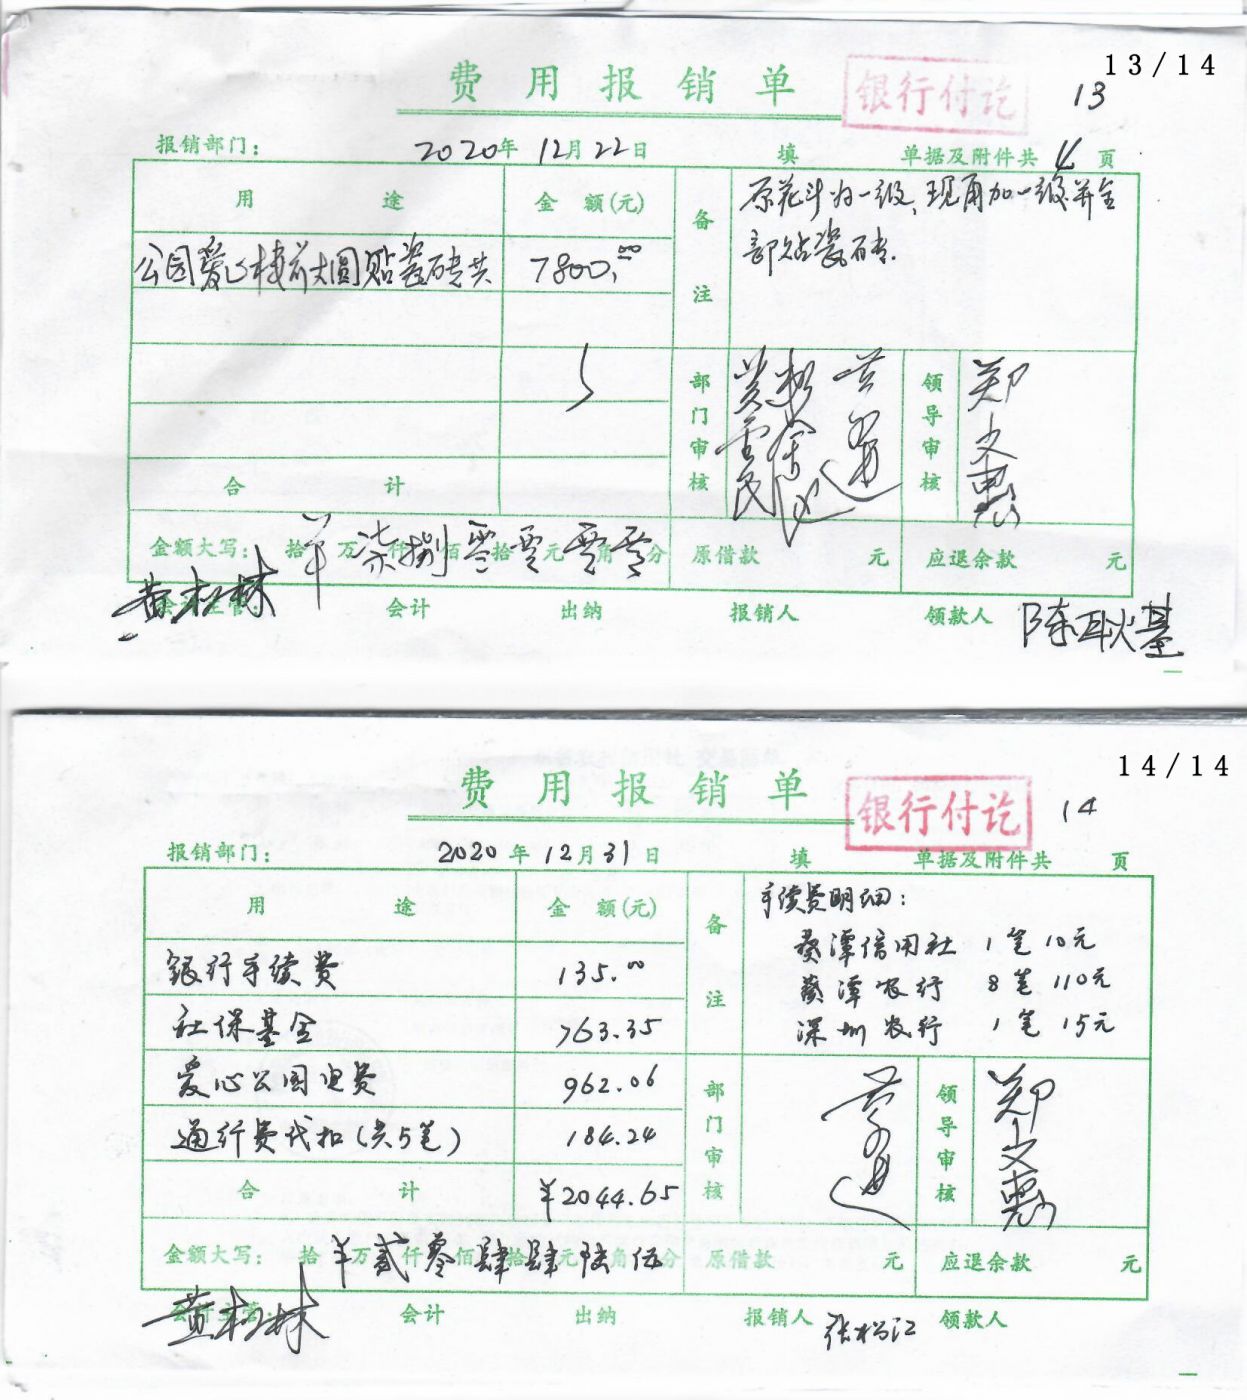 13/14
费用报销单
银行付讫
13
报销部门:
2020年12月22日
填
单据及附件共4页
用途
金额(元)
备注
原花斗为一级,现再加一级并全
部贴瓷砖.
公园爱心楼前大圆贴瓷砖共
7800.00
部门审核
领导审核
郑文惠
合计
金额大写:
拾¥万柒仟捌佰零拾零元零角零分
原借款
元
应退余款
元
会计主管:
黄松林
会计
出纳
报销人
领款人
陈耿基
14/14
费用报销单
银行付讫
14
报销部门:
2020年12月31日
填
单据及附件共
页
用途
金额(元)
备注
手续费明细:
葵潭信用社 1笔 10元
葵潭农行 8笔 110元
深圳农行 1笔 15元
银行手续费
135.00
社保基金
763.35
爱心公园电费
962.06
通行费代扣(共5笔)
184.24
部门审核
领导审核
郑文惠
合计
¥2044.65
金额大写:
拾¥万贰仟零佰肆拾肆元陆角伍分
原借款
元
应退余款
元
会计主管:
黄松林
会计
出纳
报销人
张松江
领款人